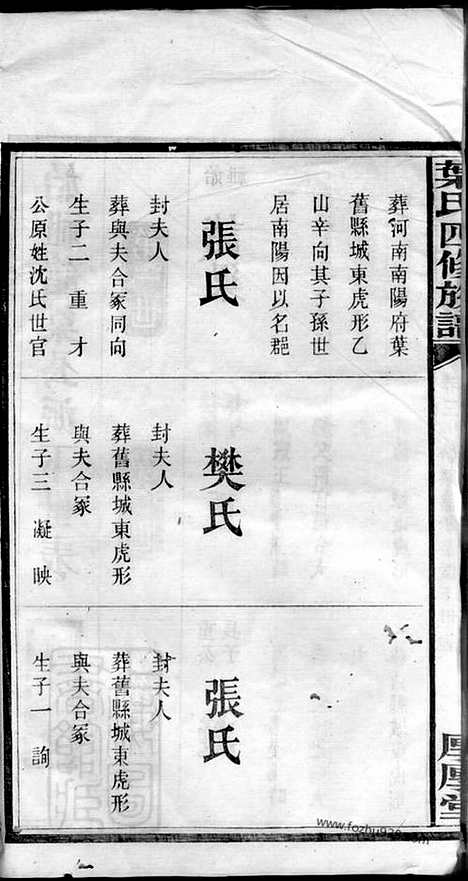 葉氏四修族譜
厚屋堂
葬河南南陽府葉
舊縣城東虎形乙
山辛向其子孫世
居南陽因以名郡
張氏
封夫人
葬與夫合冢同向
生子二 重 才
公原姓沈氏世官
樊氏
封夫人
葬舊縣城東虎形
與夫合冢
生子三 凝 映
張氏
封夫人
葬舊縣城東虎形
與夫合冢
生子一 詢